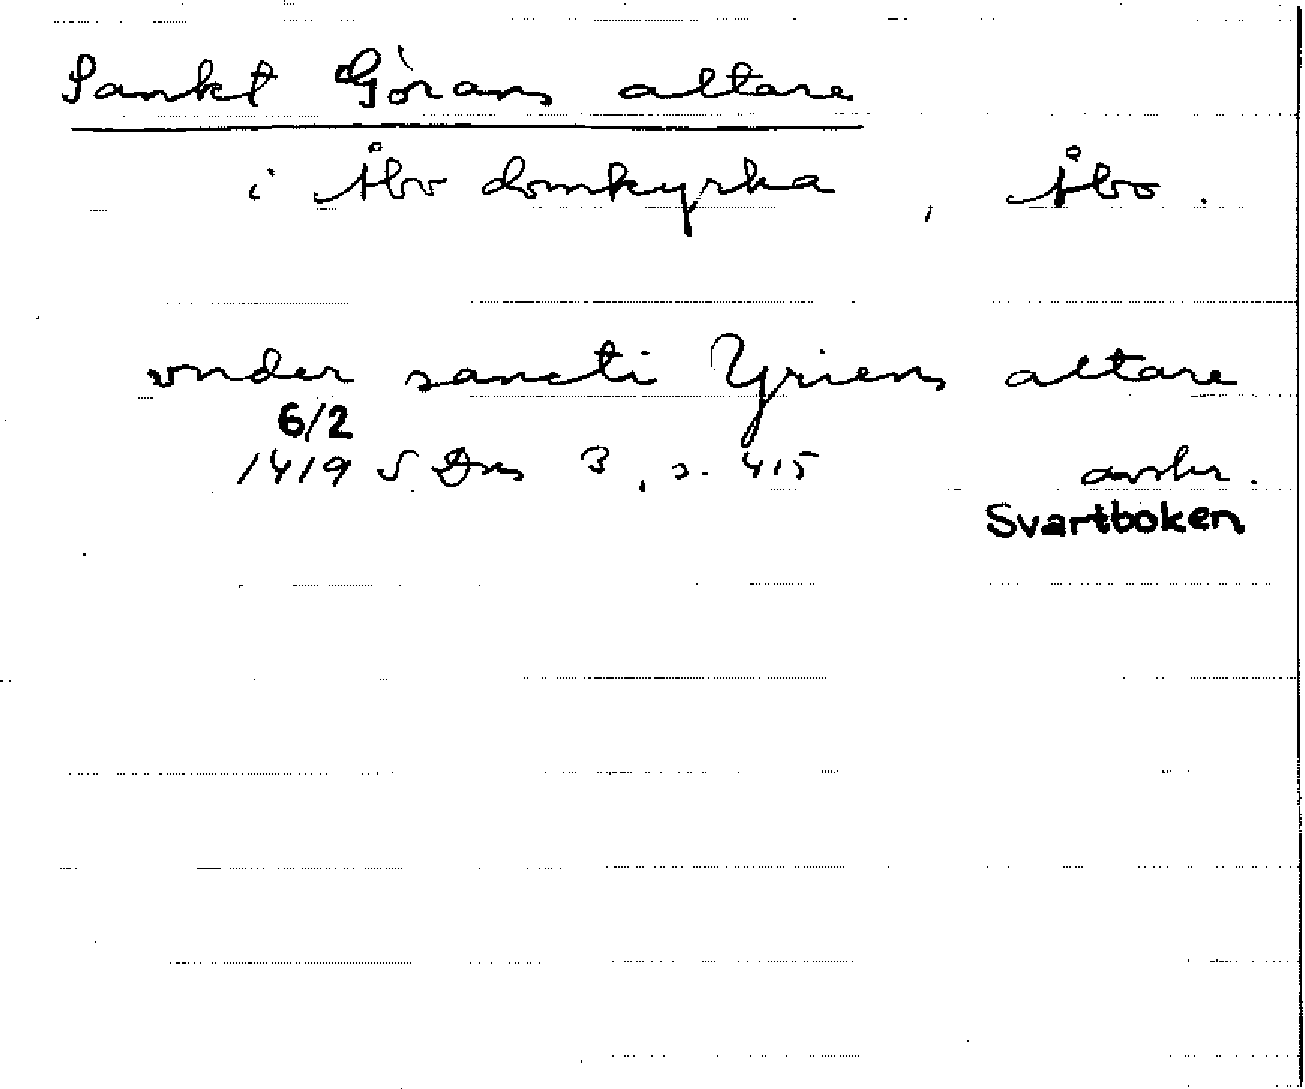 Sankt Görans altare
i Åbo domkyrka, Åbo.
vnder sancti Yriens altare
6/2
1419 SDns 3, s. 415 avskr.
Svartboken